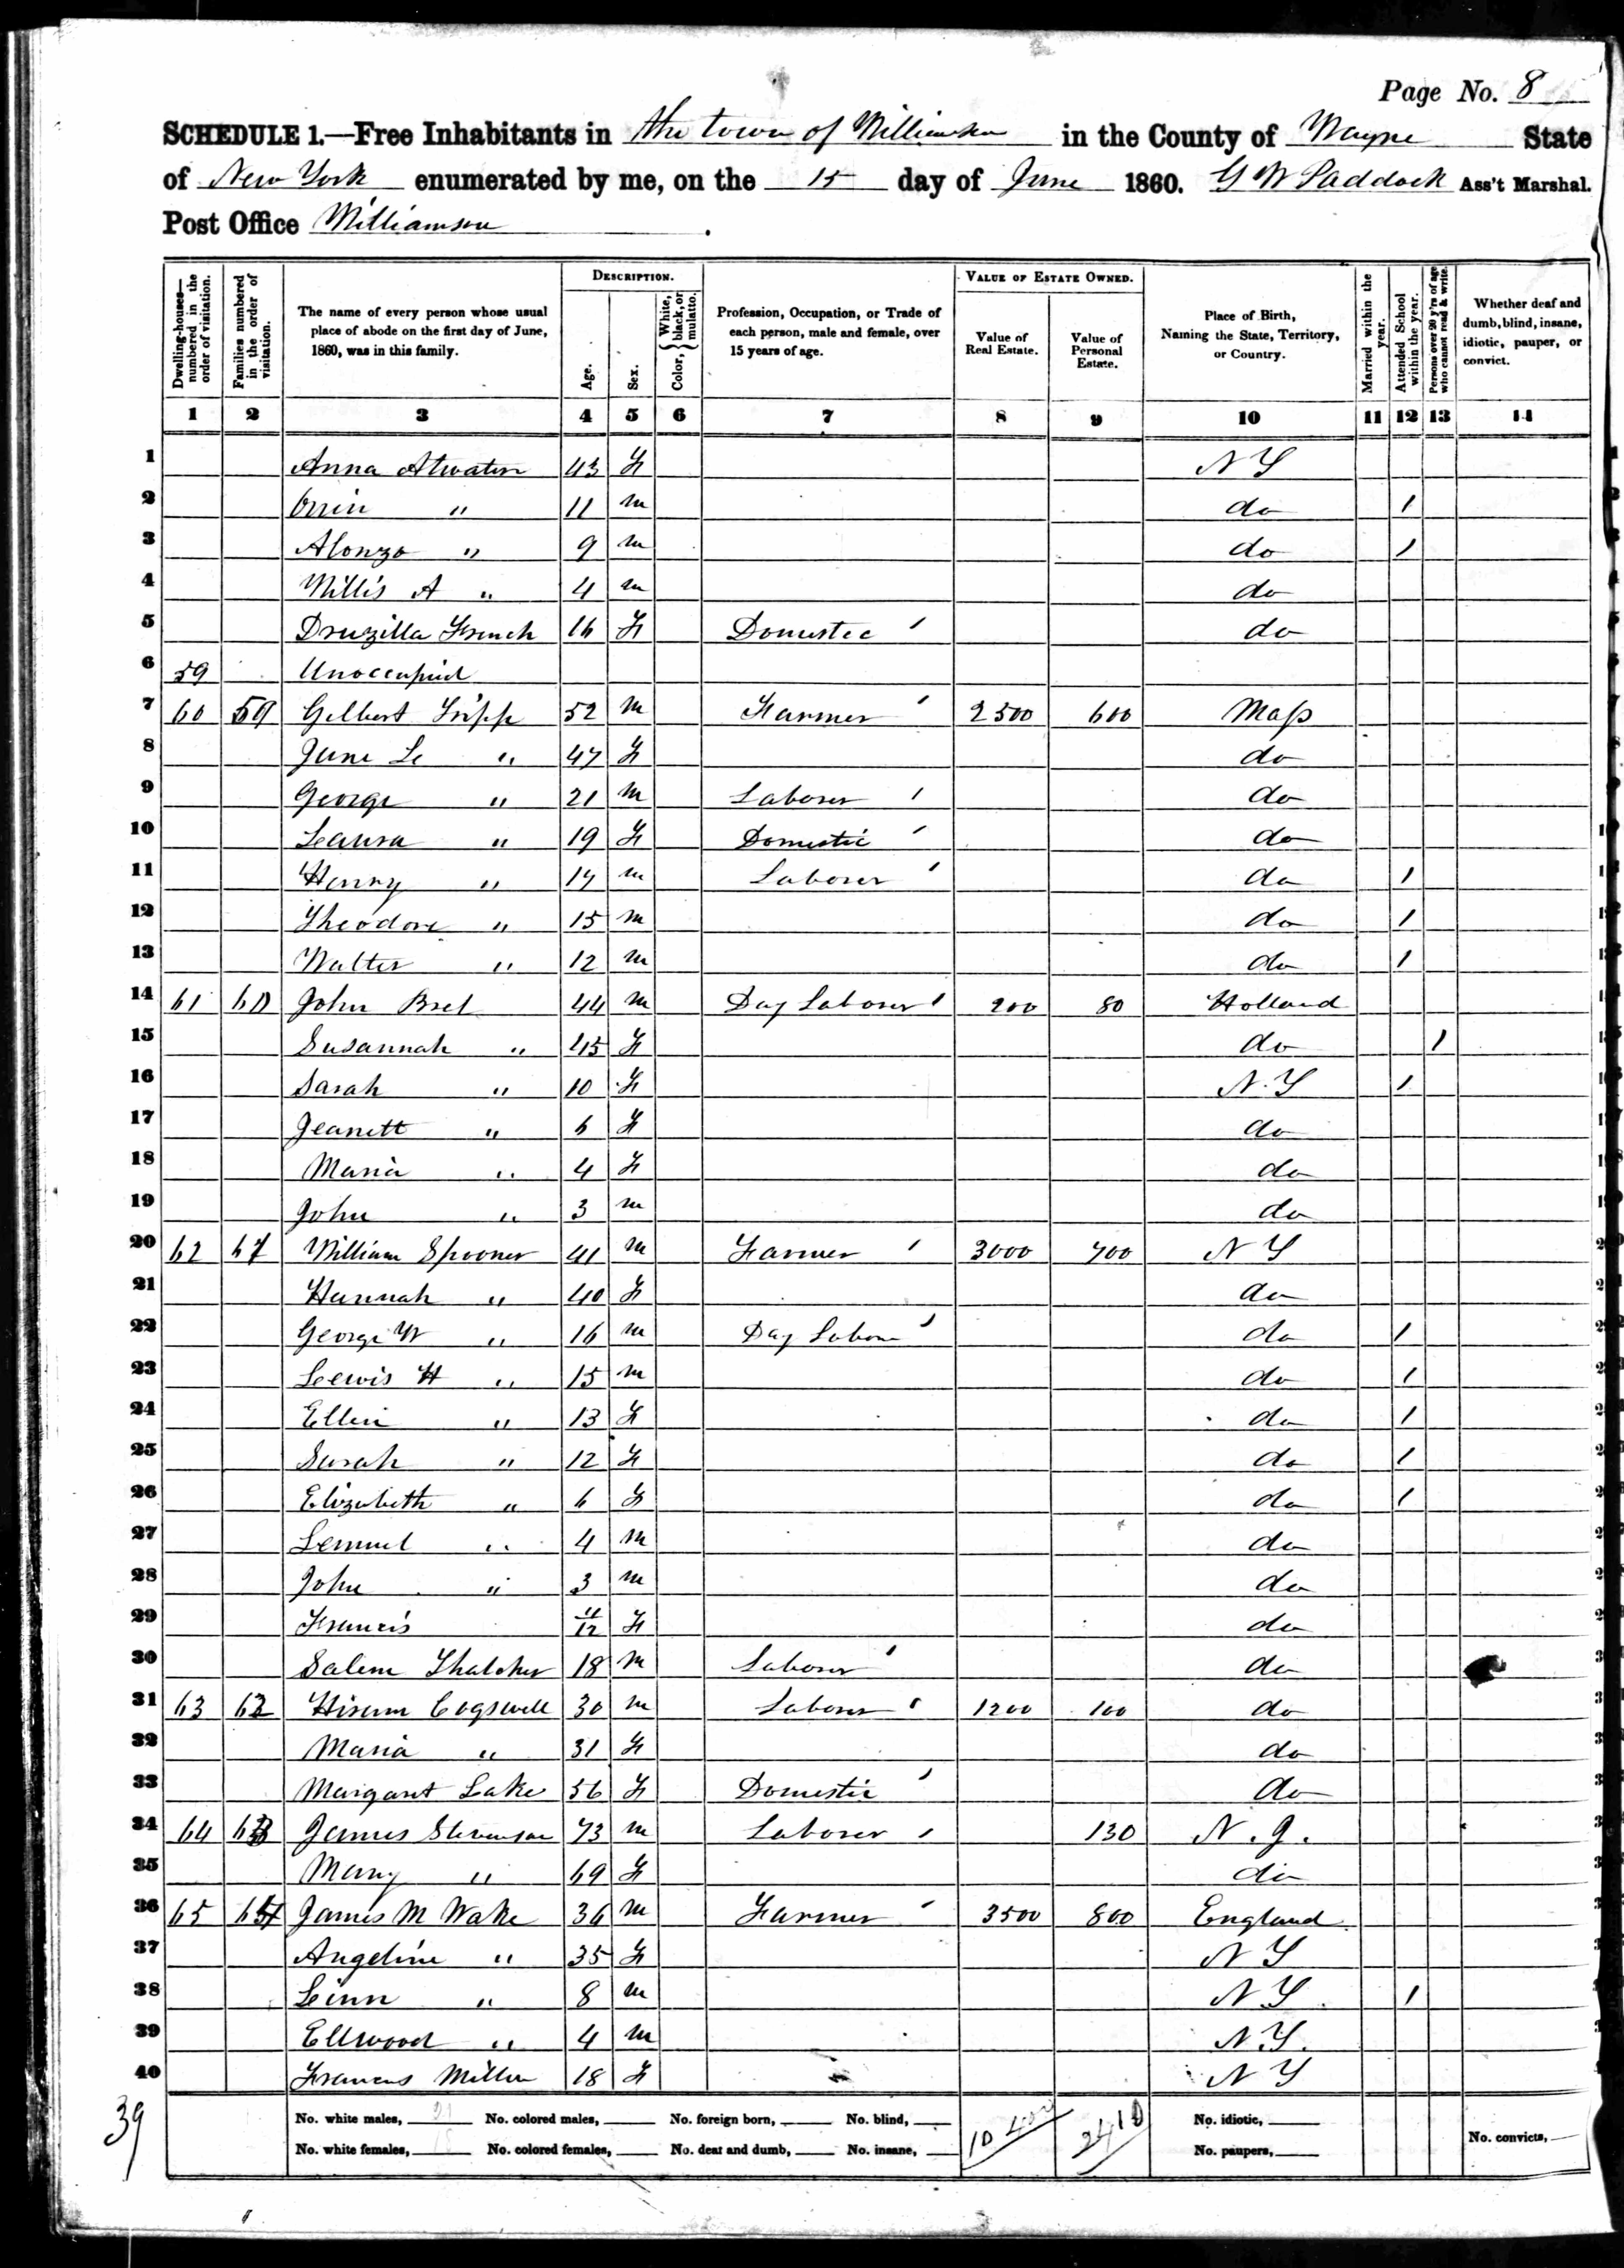 Page No. 8
SCHEDULE 1.—Free Inhabitants in the town of Williamson in the County of Wayne State
of New York enumerated by me, on the 15 day of June 1860. G W Paddock Ass't Marshal.
Post Office Williamson.
Dwelling-houses—numbered in the order of visitation.
Families numbered in the order of visitation.
The name of every person whose usual place of abode on the first day of June, 1860, was in this family.
DESCRIPTION.
Age.
Sex.
Color, White, black, or mulatto.
Profession, Occupation, or Trade of each person, male and female, over 15 years of age.
VALUE OF ESTATE OWNED.
Value of Real Estate.
Value of Personal Estate.
Place of Birth, Naming the State, Territory, or Country.
Married within the year.
Attended School within the year.
Persons over 20 y'rs of age who cannot read & write.
Whether deaf and dumb, blind, insane, idiotic, pauper, or convict.
1 2 3 4 5 6 7 8 9 10 11 12 13 14
1 Anna Atwater 43 F N Y
2 Orrin " 11 m do /
3 Alonzo " 9 m do /
4 Willis A " 4 m do
5 Druzilla French 16 F Domestec / do
6 59 Unoccupied
7 60 59 Gilbert Tripp 52 m Farmer / 2500 600 Mass
8 June Le " 47 F do
9 George " 21 m Laborer / do
10 Laura " 19 F Domestic / do
11 Henry " 17 m Laborer / do /
12 Theodore " 15 m do /
13 Walter " 12 m do /
14 61 60 John Brel 44 m Day Laborer / 200 80 Holland
15 Susannah " 45 F do /
16 Sarah " 10 F N.Y /
17 Jeanett " 6 F do
18 Maria " 4 F do
19 John " 3 m do
20 62 61 William Spooner 41 m Farmer / 3000 700 N Y
21 Hannah " 40 F do
22 George W " 16 m Day Labor / do /
23 Lewis H " 15 m do /
24 Ellen " 13 F do /
25 Sarah " 12 F do /
26 Elizabeth " 6 F do /
27 Lemuel " 4 m do
28 John " 3 m do
29 Francis 11/12 F do
30 Salem Thatcher 18 m Laborer / do
31 63 62 Hiram Cogswell 30 m Laborer / 1200 100 do
32 Maria " 31 F do
33 Margaret Lake 56 F Domestic / do
34 64 63 James Stevenson 73 m Laborer / 130 N.J.
35 Mary " 69 F do
36 65 64 James M Wake 36 m Farmer / 3500 800 England
37 Angeline " 35 F N Y
38 Linn " 8 m N Y. /
39 Ellwood " 4 m N.Y.
40 Frances Miller 18 F N Y
39
No. white males, 21 No. colored males, No. foreign born, No. blind, 10400 2410 No. idiotic,
No. white females, 18 No. colored females, No. deaf and dumb, No. insane, No. paupers, No. convicts,